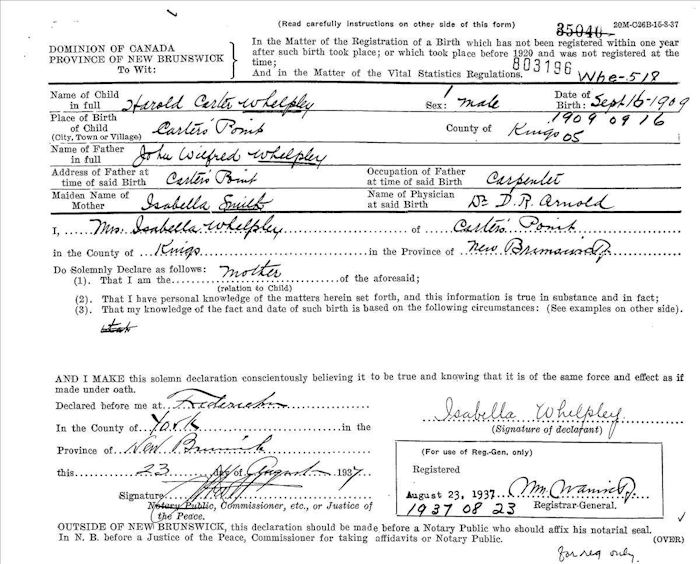 (Read carefully instructions on other side of this form) 35040 20M-C26B-15-8-37
DOMINION OF CANADA
PROVINCE OF NEW BRUNSWICK
To Wit:
In the Matter of the Registration of a Birth which has not been registered within one year
after such birth took place; or which took place before 1920 and was not registered at the
time;
And in the Matter of the Vital Statistics Regulations.
803196 Whe-518
Name of Child in full Harold Carter Whelpley Sex: male Date of Birth: Sept 16-1909
1909 09 16
Place of Birth of Child (City, Town or Village) Carters Point County of Kings 05
Name of Father in full John Wilfred Whelpley
Address of Father at time of said Birth Carters Point Occupation of Father at time of said Birth Carpenter
Maiden Name of Mother Isabella Smith Name of Physician at said Birth Dr D. R. Arnold
I, Mrs. Isabella Whelpley of Carters Point
in the County of Kings in the Province of New Brunswick
Do Solemnly Declare as follows:
(1). That I am the mother of the aforesaid;
(relation to Child)
(2). That I have personal knowledge of the matters herein set forth, and this information is true in substance and in fact;
(3). That my knowledge of the fact and date of such birth is based on the following circumstances: (See examples on other side).
AND I MAKE this solemn declaration conscientiously believing it to be true and knowing that it is of the same force and effect as if
made under oath.
Declared before me at Fredericton
In the County of York in the
Province of New Brunswick
this 23 day of August 1937
Isabella Whelpley
(Signature of declarant)
Signature
Notary Public, Commissioner, etc., or Justice of
the Peace.
(For use of Reg.-Gen. only)
Registered
August 23, 1937
Registrar-General.
1937 08 23
OUTSIDE OF NEW BRUNSWICK, this declaration should be made before a Notary Public who should affix his notarial seal.
In N. B. before a Justice of the Peace, Commissioner for taking affidavits or Notary Public. (OVER)
for reg only.